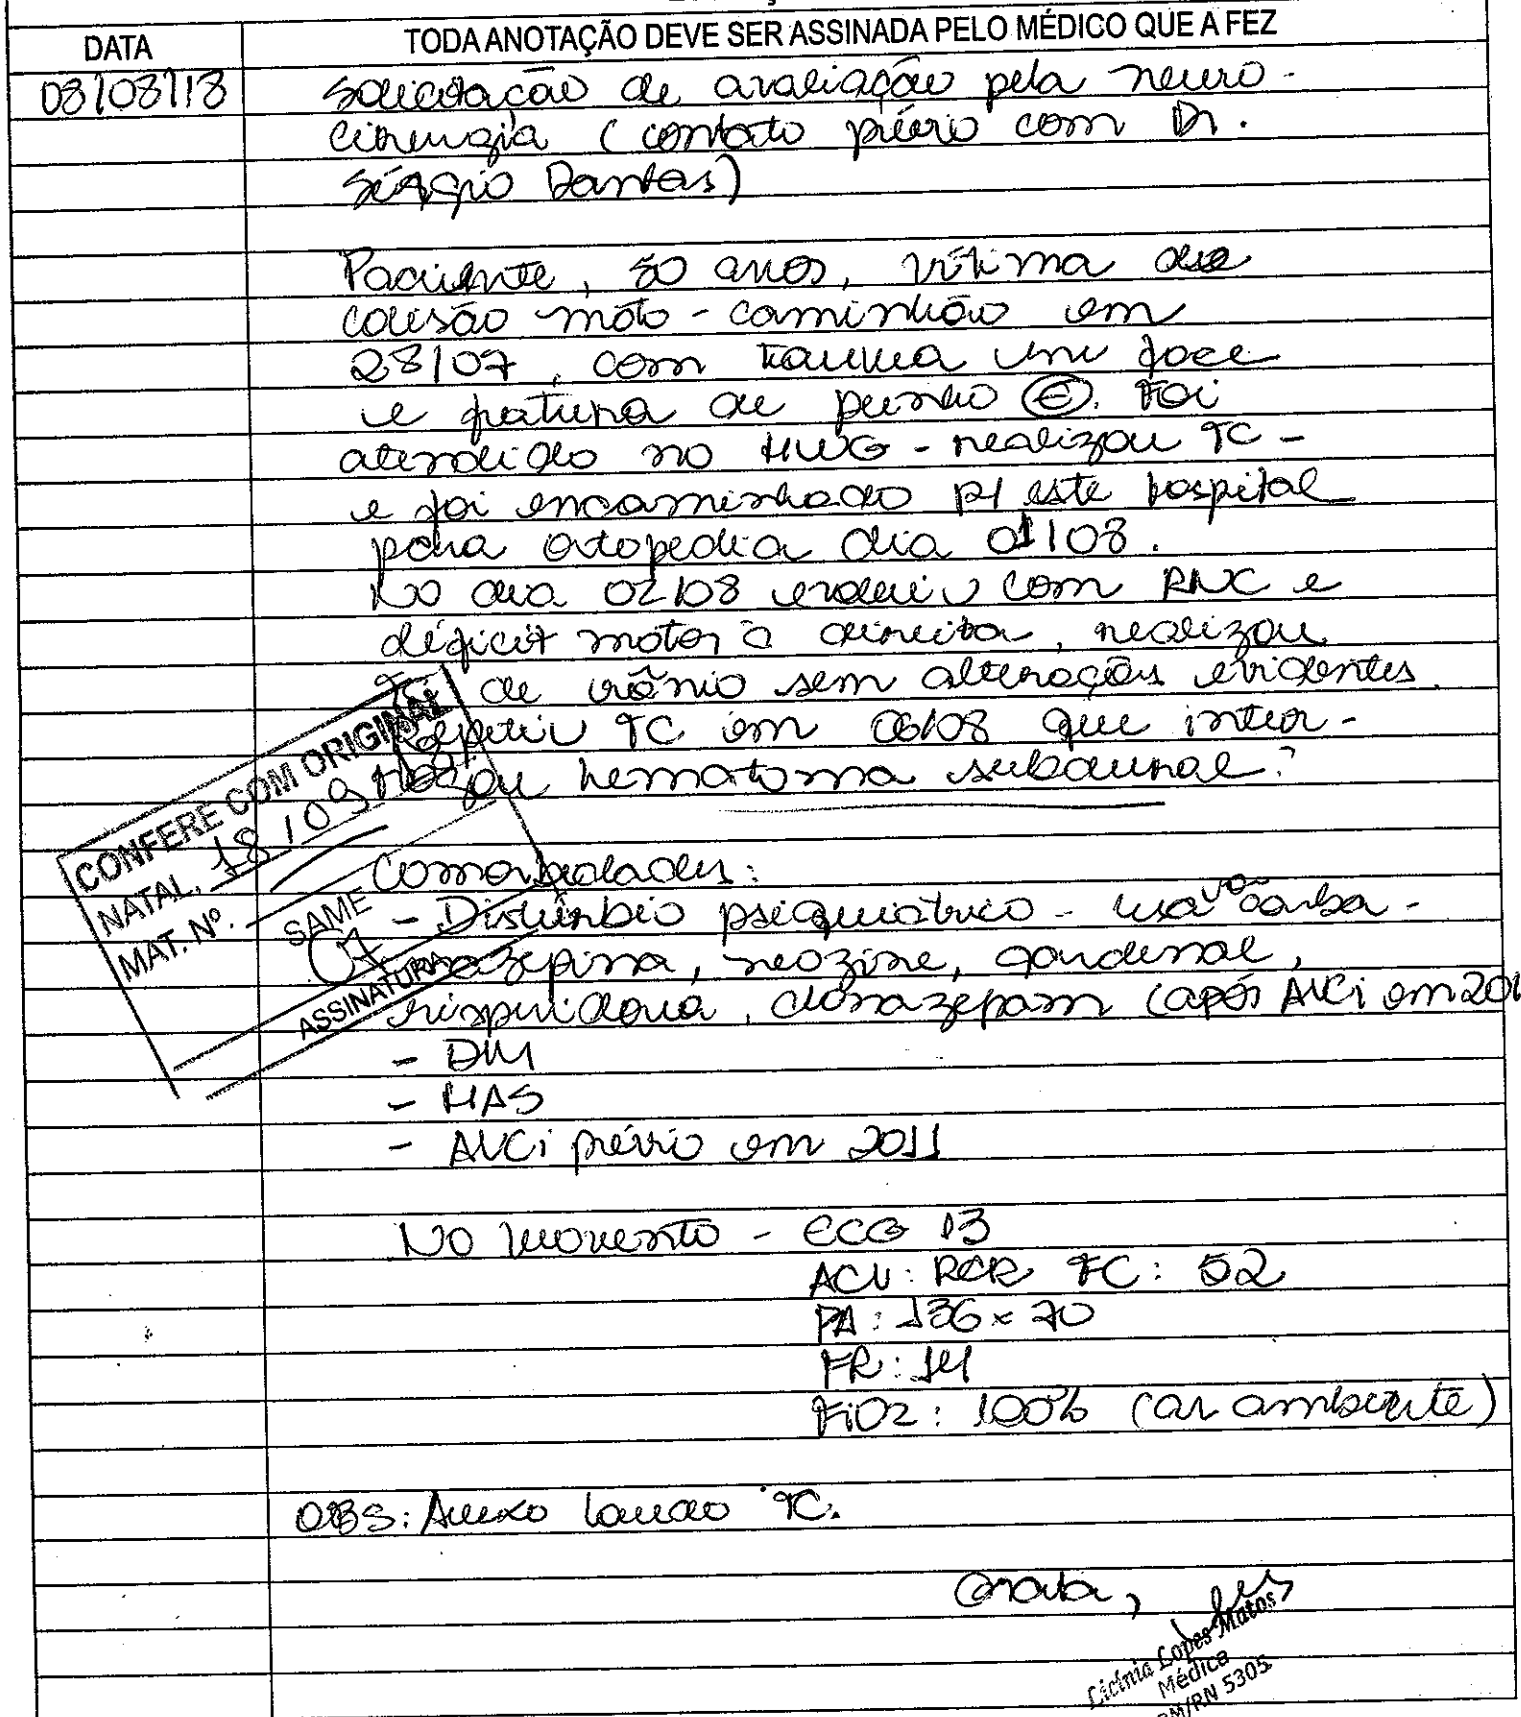 DATA
TODA ANOTAÇÃO DEVE SER ASSINADA PELO MÉDICO QUE A FEZ
08/08/18
Solicitação de avaliação pela neuro-
cirurgia (contato prévio com Dr.
Sérgio Dantas)
Paciente, 50 anos, vítima de
colisão moto-caminhão em
28/07, com trauma em face
e fratura de punho (E). Foi
atendido no HWG - realizou TC -
e foi encaminhado p/ este hospital
para ortopedia dia 01/08.
No dia 02/08 evoluiu com RNC e
déficit motor à direita, realizou
TC de crânio sem alterações evidentes.
Repetiu TC em 06/08 que inter-
rogou hematoma subdural?
CONFERE COM ORIGINAL
NATAL, 18/09/
MAT. Nº.
SAME
ASSINATURA
Comorbidades:
- Distúrbio psiquiátrico - usava carba-
mazepina, neozine, gardenal,
risperidona, clonazepam (após AVCi em 201
- DM
- HAS
- AVCi prévio em 2011
No momento - ECG 13
ACV: RCR FC: 52
PA: 136 x 70
FR: 14
FiO2: 100% (ar ambiente)
OBS: Anexo laudo TC.
Grata,
Licínia Lopes Matos
Médica
RM/RN 5305